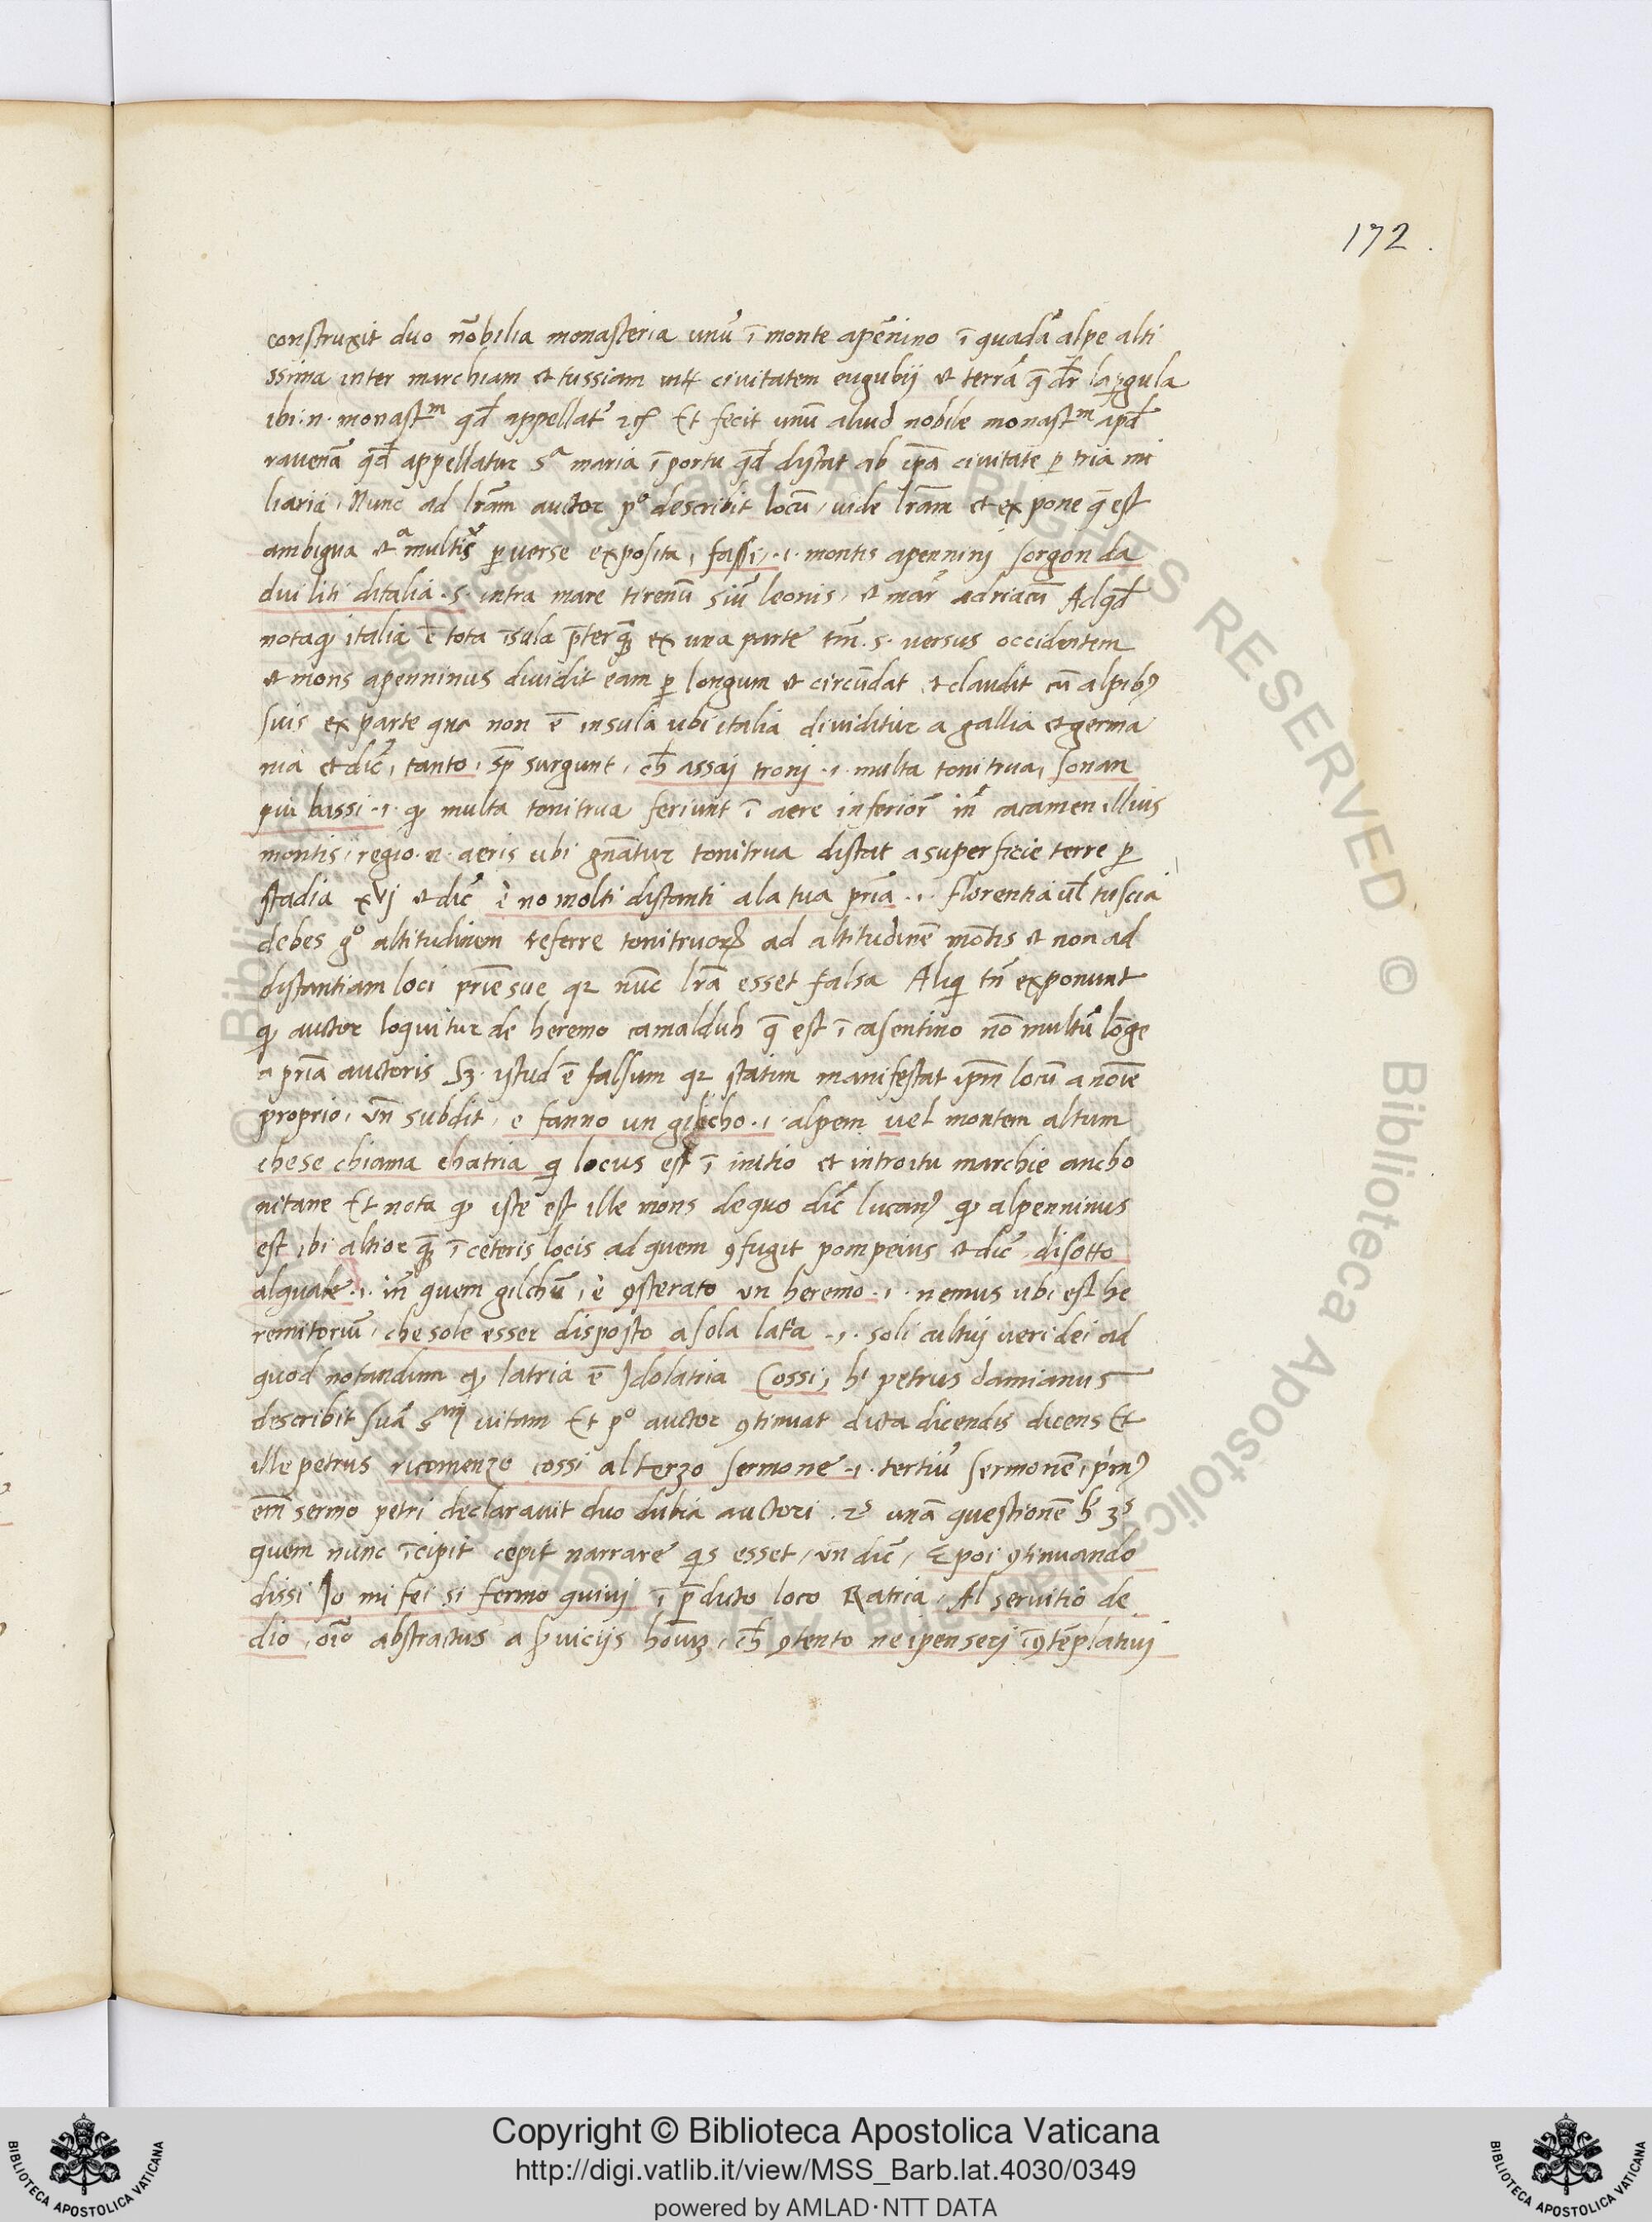 172.
construxit duo nobilia monasteria unū ī monte apēnino ī quadā alpe alti
ssima inter marchiam et tussiam int̃ civitatem eugubij et terrā q̄ dr̄ la ꝑgula
ibi .n. monastm qđ appellat᷑ Et fecit unū aliud nobile monastm apđ
ravenā qđ appellatur sa maria ī portu qđ distat ab ip̄a civitate ꝑ tria mi
liaria, Nunc ad lr̄am auctor po describit locū, vide lr̄am et expone q̄ est
ambigua et a multis ꝑverse exposita, sassi, .i. montis apennini sorgon da
dui liti ditalia .s. intra mare tirenū siū leonis, et mar̄ adriacū Ad qđ
nota qꝫ italia ē tota īsula p̄terqꝫ ex una parte tm̄ .s. versus occidentem
et mons apenninus dividit eam ꝑ longum et circūdat et claudit cū alpibꝰ
suis ex parte qua non ē insula ubi italia dividitur a gallia et germa
nia et dic̄, tanto, sp̄ surgunt, cħ assaj tronj .i. multa tonitrua, sonan
piu bassi .i. qꝫ multa tonitrua feriunt ī aere inferior̄ īn cacamen illius
montis, regio .n. aeris ubi gn̄atur tonitrua distat a superficie terre ꝑ
stadia xvj et dic̄ e no molti distanti a la tua pr̄ia .i. florentia vł tuscia
debes go altitudinem referre tonitruoꝝ ad altitudinē mōtis et non ad
distantiam loci pr̄ie sue qr nūc lr̄a esset falsa Aliqi tn̄ exponunt
qꝫ auctor loquitur de heremo camalduli q̄ est ī casentino nō multū lōge
a pr̄ia auctoris Sꝫ istud ē falsum qr statim manifestat ip̄m locū a noīe
proprio, vn̄ subdit, e fanno un gibcho .i. alpem vel montem altum
che se chiama chatria qi locus est ī initio et introitu marchie ancho
nitane Et nota qꝫ iste est ille mons de quo dic̄ lucanꝰ qꝫ alpenninus
est ibi altior qꝫ ī ceteris locis ad quem ꝯfugit pompeius et dic̄ disotto
alquale .i. īn quem gilchū, è ꝯsterato un heremo .i. nemus ubi est he
remitoriū, che sole esser disposto a sola lat̃a .i. soli cultuj veri dei ad
quod notandum qꝫ latria ē Idolatria Cossi, hi petrus damianus
describit suā smj vitam Et po auctor ꝯtinuat dicta dicendis dicens Et
ille petrus ricomenzo cossi al terzo sermone .i. tertiū sermonē, pimꝰ
em̄ sermo petri declaravit duo dubia auctori .2s unā questionē hi 3s
quem nunc īcipit cepit narrare qis esset, vn̄ dic̄, E poi ꝯtinuando
dissi Io mi fei si fermo quivj ī p̄dicto loco Ratria, Al servitio de
dio, oīo abstractus a ẜvicijs hoīuꝫ, cħ ꝯtento ne i penserj ꝯtēplativj
Copyright © Biblioteca Apostolica Vaticana
http://digi.vatlib.it/view/MSS_Barb.lat.4030/0349
powered by AMLAD·NTT DATA
BIBLIOTECA APOSTOLICA VATICANA
BIBLIOTECA APOSTOLICA VATICANA